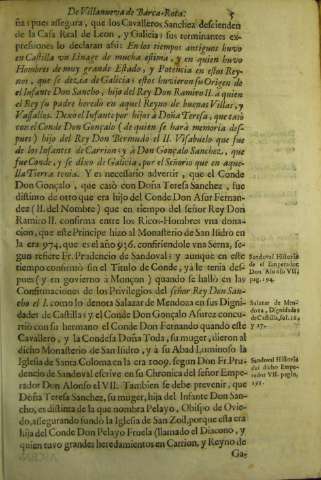 De Villanueva de Barca-Rota. 5
ña; pues assegura, que los Cavalleros Sanchez descienden
de la Casa Real de Leon, y Galicia: sus terminantes ex-
presiones lo declaran assi: En los tiempos antiguos huvo
en Castilla un Linage de mucha estima, y en quien huvo
Hombres de muy grande Estado, y Potencia en estos Rey-
nos, que se dezia de Galicia: estos huvieron su Origen de
el Infante Don Sancho, hijo del Rey Don Ramiro II. à quien
el Rey su padre heredò en aquel Reyno de buenas Villas, y
Vassallos. Dexò el Infante por hijos à Doña Teresa, que casò
con el Conde Don Gonçalo (de quien se harà memoria des-
pues) hijo del Rey Don Bermudo el II. Visabuelo que fue
de los Infantes de Carrion: y à Don Gonçalo Sanchez, que
fue Conde, y se dixo de Galicia, por el Señorio que en aque-
lla Tierra tenia. Y es necessario advertir, que el Conde
Don Gonçalo, que casò con Doña Teresa Sanchez, fue
distinto de otro que era hijo del Conde Don Asur Fernan-
dez (II. del Nombre) que en tiempo del señor Rey Don
Ramiro II. confirma entre los Rico-Hombres una dona-
cion, que este Principe hizo al Monasterio de San Isidro en
la era 974. que es el año 936. confiriendole una Serna, se-
gun refiere Fr. Prudencio de Sandoval: y aunque en este
tiempo confirmò sin el Titulo de Conde, ya le tenia des-
pues (y en govierno à Monçon) quando se hallò en las
Confirmaciones de los Privilegios del señor Rey Don San-
cho el I. como lo denota Salazar de Mendoza en sus Digni-
dades de Castilla: y el Conde Don Gonçalo Asurez concu-
rriò con su hermano el Conde Don Fernando quando este
Cavallero, y la Condesa Doña Toda, su muger, dieron al
dicho Monasterio de San Isidro, y à su Abad Luminoso la
Iglesia de Santa Coloma en la era 2009. segun Don Fr. Pru-
dencio de Sandoval escrive en su Chronica del señor Empe-
rador Don Alonso el VII. Tambien se debe prevenir, que
Doña Teresa Sanchez, su muger, hija del Infante Don San-
cho, es distinta de la que nombra Pelayo, Obispo de Ovie-
do, assegurando fundò la Iglesia de San Zoil, porque esta era
hija del Conde Don Pelayo Fruela (llamado el Diacono, y
quien tuvo grandes heredamientos en Carrion, y Reyno de
Ga-
Sandoval Historia
de el Emperador
Don Alonso VII.
pag. 194.
Salazar de Men-
doza, Dignidades
de Castilla, fol. 24
y 27.
Sandoval Historia
del dicho Empe-
rador VII. pagin.
191.